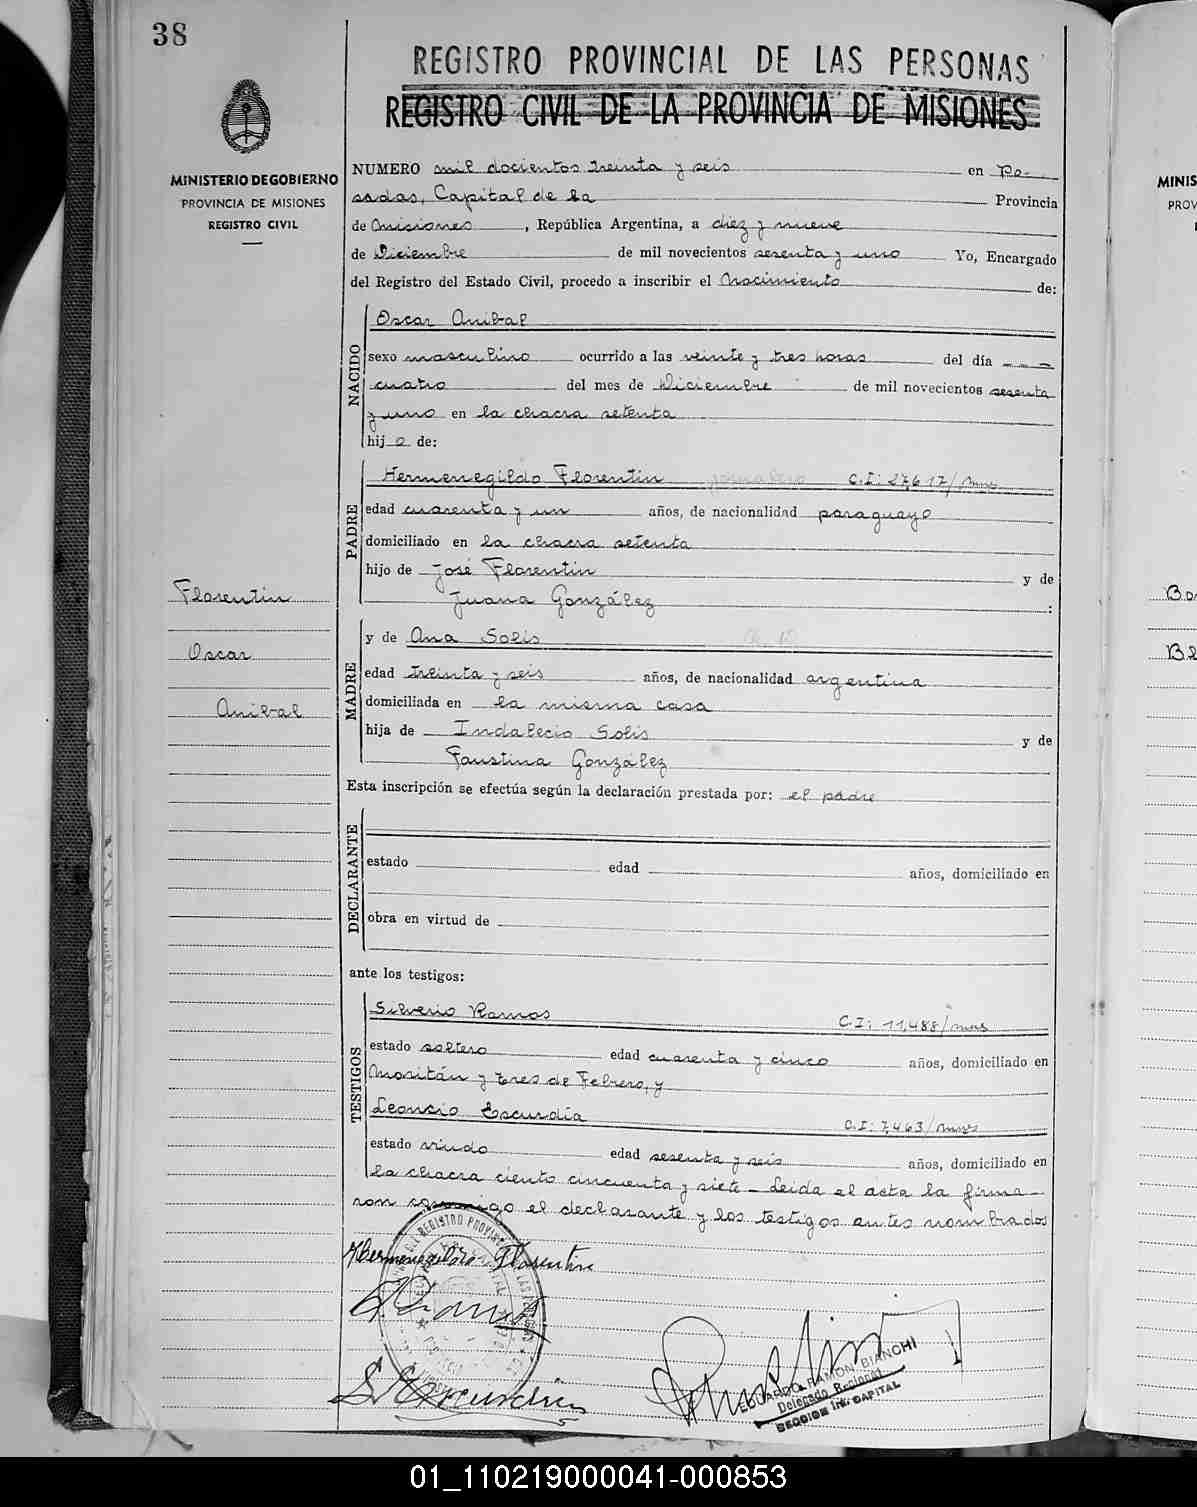 38
REGISTRO PROVINCIAL DE LAS PERSONAS
REGISTRO CIVIL DE LA PROVINCIA DE MISIONES
MINISTERIO DE GOBIERNO
PROVINCIA DE MISIONES
REGISTRO CIVIL
NUMERO mil docientos treinta y seis en Po-
sadas, Capital de la Provincia
de Misiones, República Argentina, a diez y nueve
de Diciembre de mil novecientos sesenta y uno Yo, Encargado
del Registro del Estado Civil, procedo a inscribir el Nacimiento de:
NACIDO
Oscar Anibal
sexo masculino ocurrido a las veinte y tres horas del día
cuatro del mes de Diciembre de mil novecientos sesenta
y uno en la chacra setenta
hijo de:
PADRE
Hermenegildo Florentin jornalero C.I: 27,617/Mnes
edad cuarenta y un años, de nacionalidad paraguayo
domiciliado en la chacra setenta
hijo de José Florentin y de
Juana González :
Florentin
Oscar
Anibal
MADRE
y de Ana Solis
edad treinta y seis años, de nacionalidad argentina
domiciliada en la misma casa
hija de Indalecio Solis y de
Faustina González
Esta inscripción se efectúa según la declaración prestada por: el padre
DECLARANTE
estado edad años, domiciliado en
obra en virtud de
ante los testigos:
TESTIGOS
Silverio Ramos C.I: 11,488/Mnes
estado soltero edad cuarenta y cinco años, domiciliado en
Moritán y tres de Febrero, y
Leoncio Escurdia C.I: 7,463/Mnes
estado viudo edad sesenta y seis años, domiciliado en
la chacra ciento cincuenta y siete - Leida el acta la firma-
ron conmigo el declarante y los testigos antes nombrados
Hermenegildo Florentin
S. Ramos
L. Escurdia
EDUARDO RAMON BIANCHI
Delegado Regional
SECCION 1ra. CAPITAL
MINIS
PROV
01_110219000041-000853